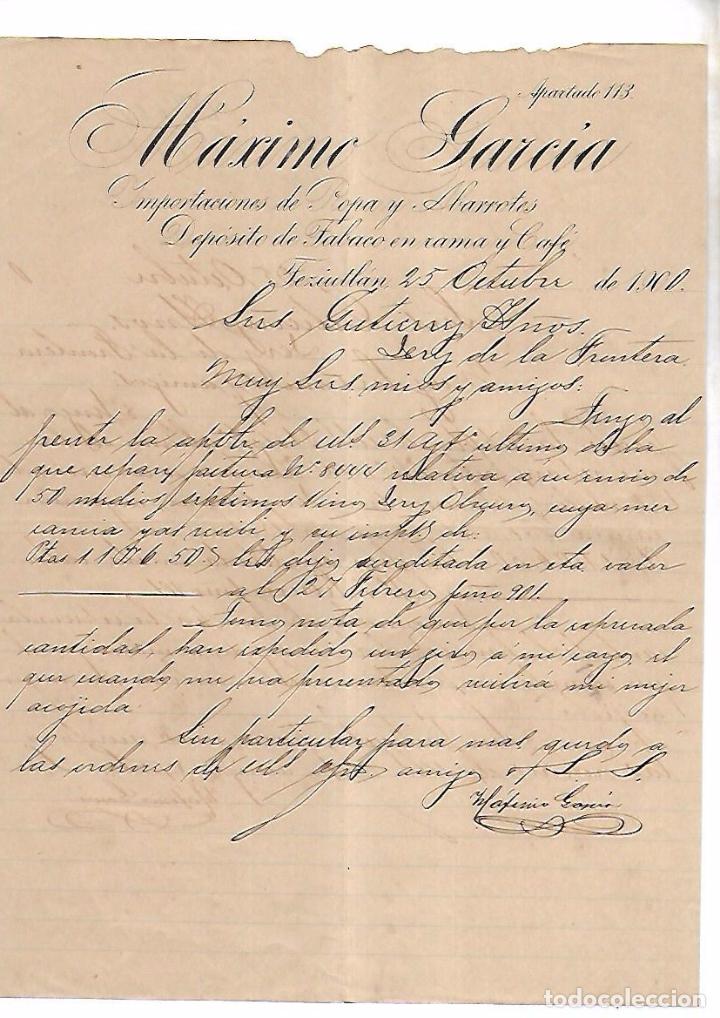 Apartado 113.
Máximo García
Importaciones de Ropa y Abarrotes
Depósito de Tabaco en rama y Café
Teziutlán, 25 Octubre de 1900.
Sres Gutierrez Hnos.
Jerez de la Frontera.
Muy Sres mios y amigos:
Tengo al
frente la apble de uds. 31 Agto ultimo, de la
que separé factura No 8444 relativa á su envio de
50 medios septimos Vino Jerez Obscuro, cuya mer
cancia ya recibi, y su impte de:
Ptas 1.176.50. les dejo acreditada en cta. valor
al 27 Febrero 901.
Tomo nota de que por la expresada
cantidad, han expedido un giro á mi cargo, el
que cuando me sea presentado recibirá mi mejor
acojida.
Sin particular para mas quedo á
las ordenes de uds. amigo y S. S.
Máximo García
todocoleccion
todocoleccion.net